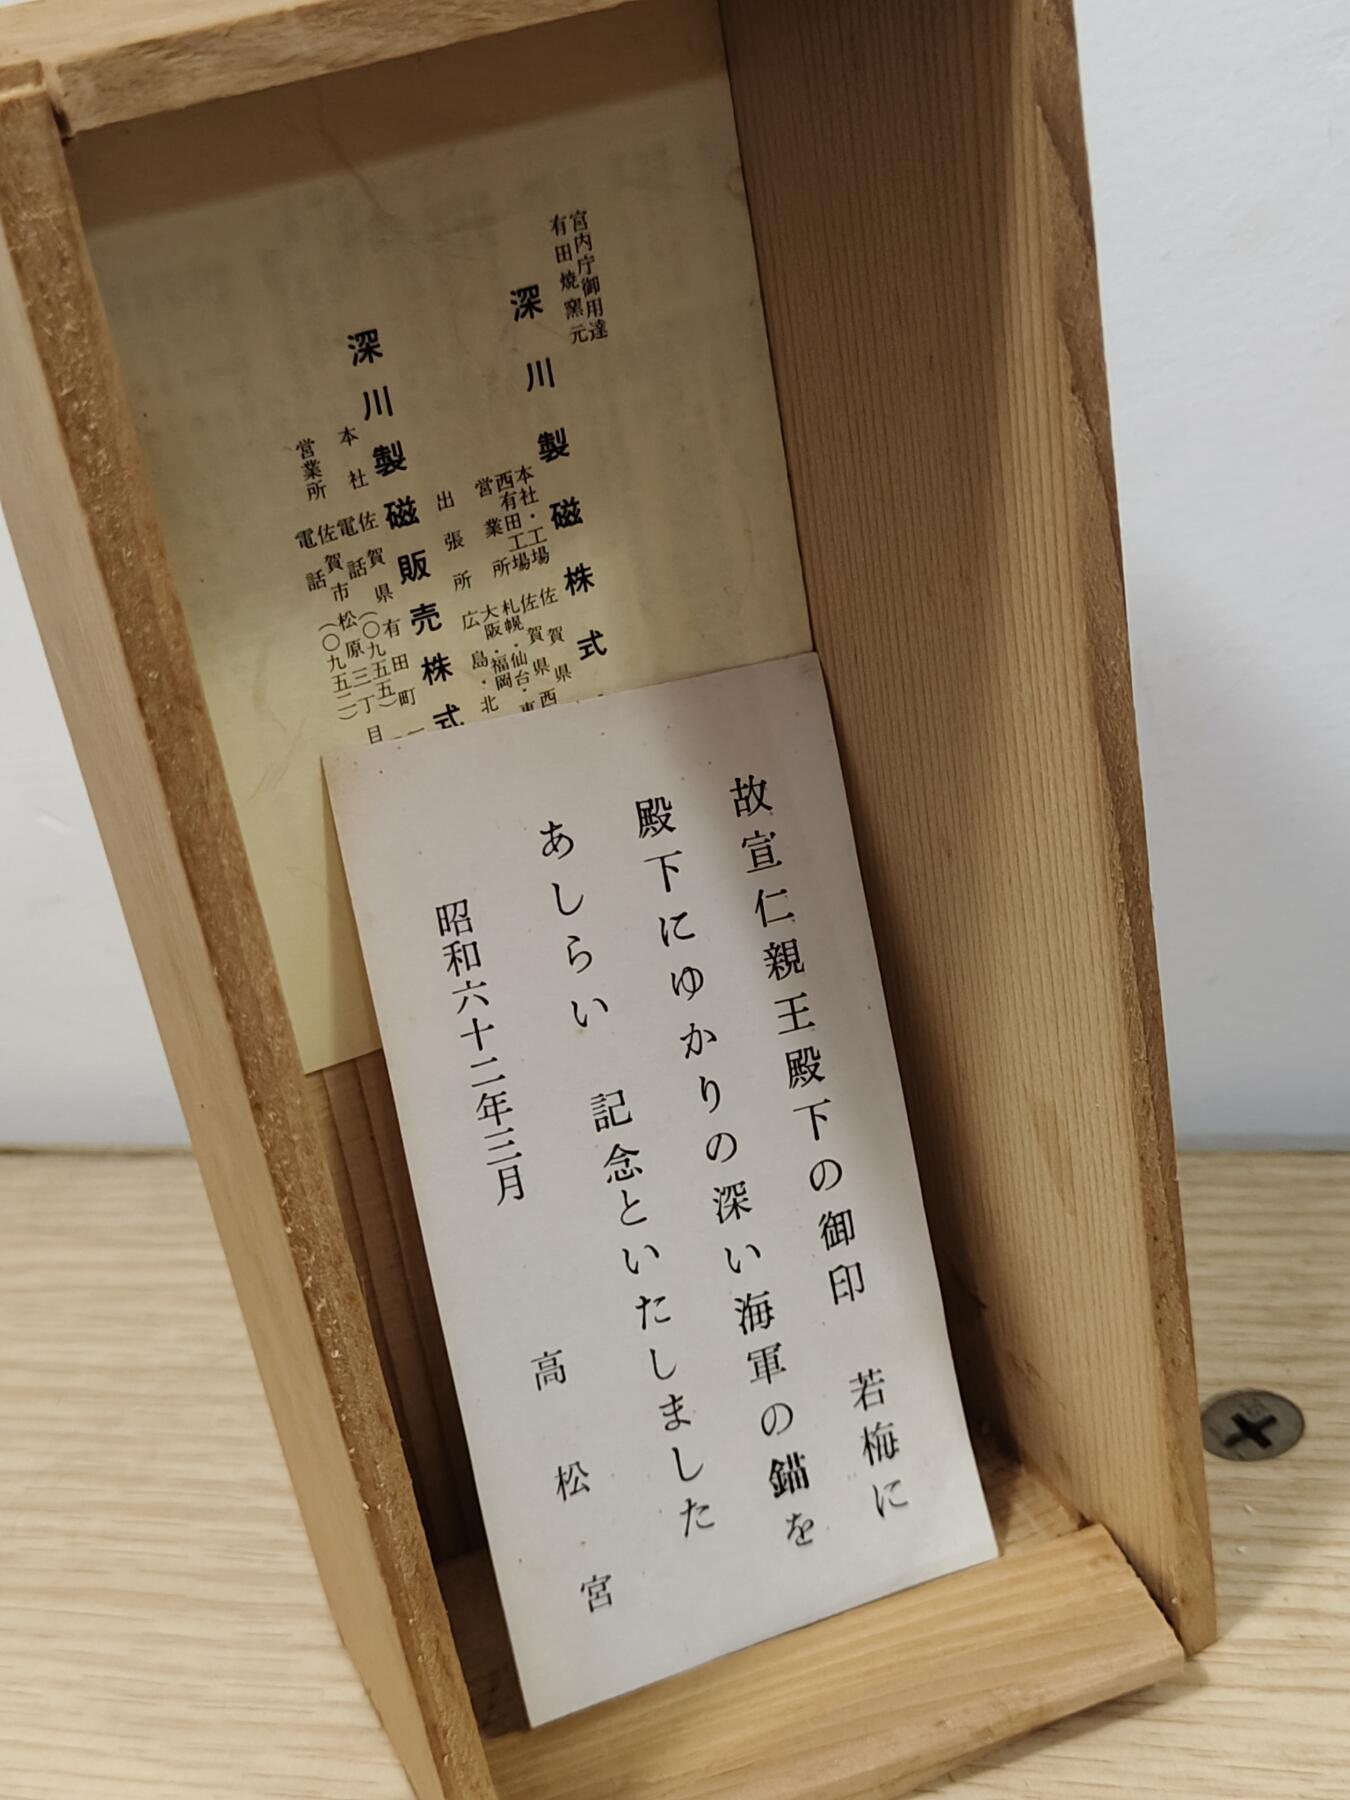 宮内庁御用達
有田焼窯元
深川製磁株式
本社・工場 佐賀県
西有田工場 佐賀県西
営業所 札幌・仙台・東
大阪・福岡
出張所 広島・北
深川製磁販売株式
本社 佐賀県有田町
電話(〇九五五)
営業所 佐賀市松原三丁目
電話(〇九五二)
故宣仁親王殿下の御印 若梅に
殿下にゆかりの深い海軍の錨を
あしらい 記念といたしました
昭和六十二年三月
高松宮